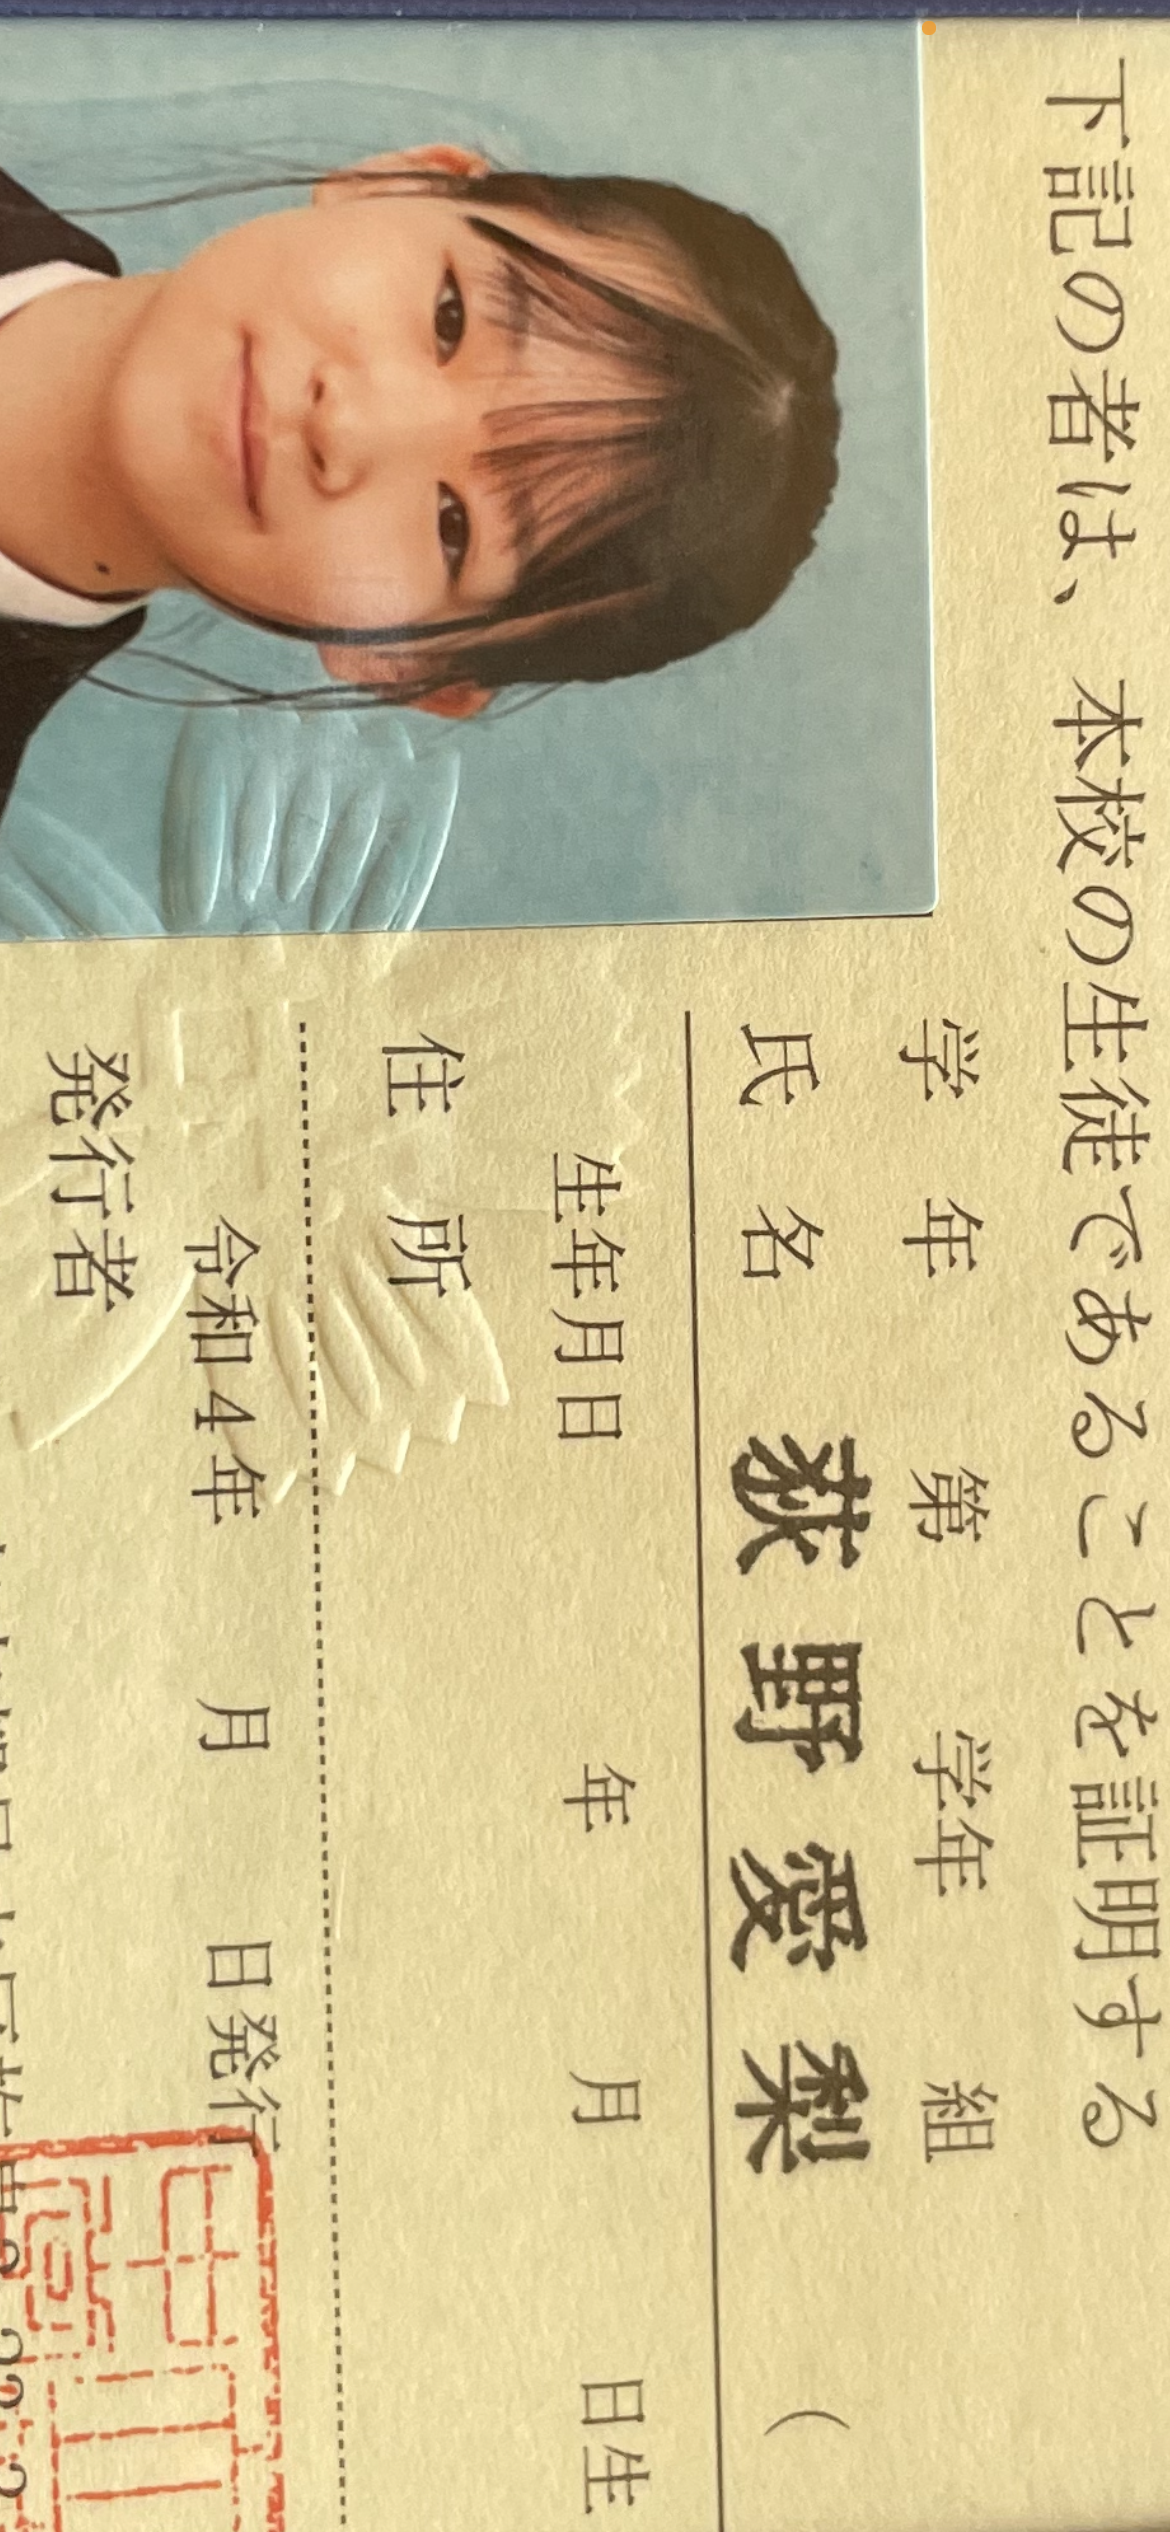 下記の者は、本校の生徒であることを証明する
学年 第 学年 組
氏名 荻野愛梨 (
生年月日 年 月 日生
住所
令和4年 月 日発行
発行者